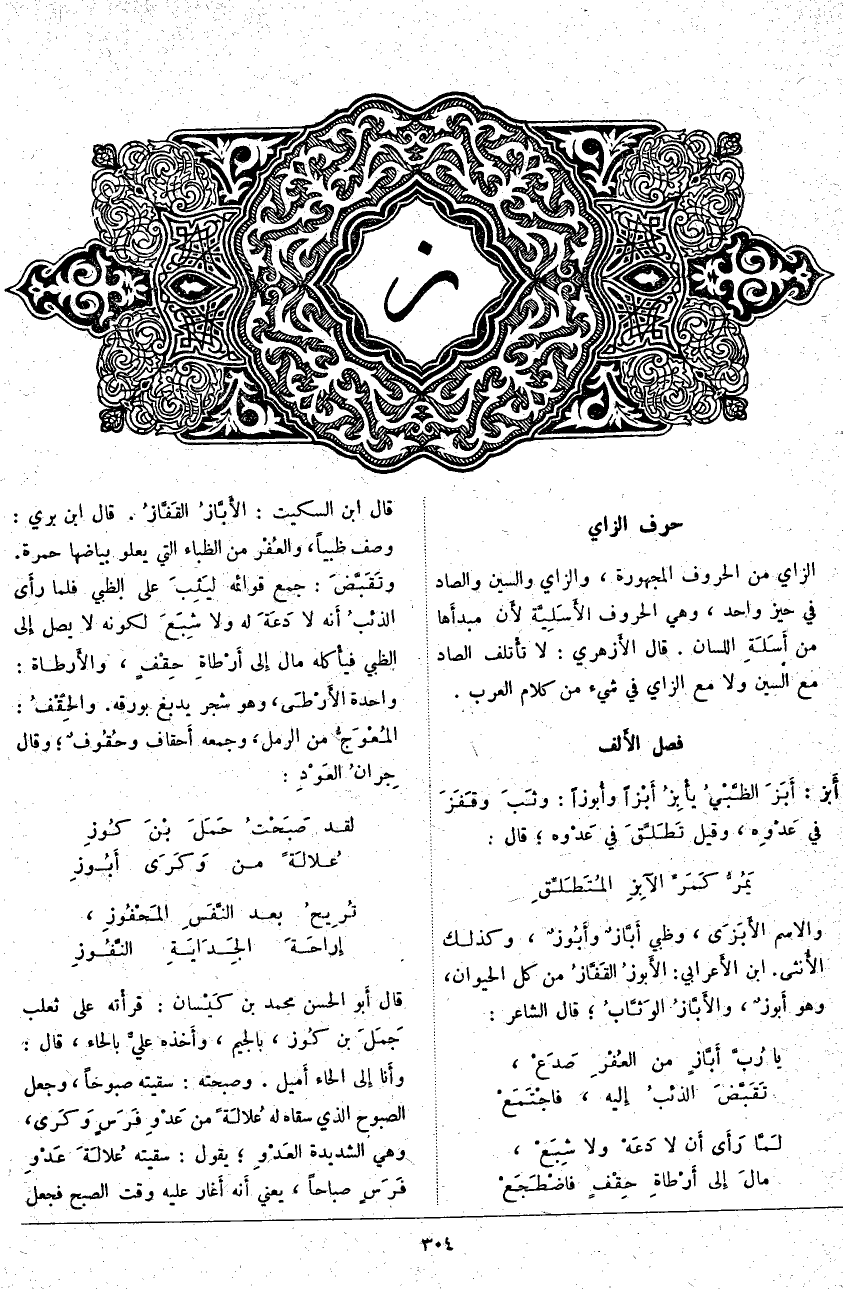 ز
حرف الزاي
الزاي من الحروف المجهورة ، والزاي والسين والصاد
في حيز واحد ، وهي الحروف الأَسَلِيَّة لأن مبدأها
من أَسَلَةِ اللسان . قال الأزهري : لا تأتلف الصاد
مع السين ولا مع الزاي في شيء من كلام العرب .
فصل الألف
أبز : أَبَزَ الظَّبْيُ يأْبِزُ أَبْزاً وأُبوزاً : وثَبَ وقَفَزَ
في عَدْوِه ، وقيل تَطَلَّقَ في عَدْوِه ؛ قال :
يَمُرُّ كَمَرِّ الآبِزِ المُتَطَلِّقِ
والاسم الأَبَزَى ، وظبي أَبَّازٌ وأَبُوزٌ ، وكذلك
الأُنثى. ابن الأعرابي: الأَبوزُ القَفَّازُ من كل الحيوان،
وهو أَبوزٌ ، والأَبَّازُ الوَثَّابُ ؛ قال الشاعر :
يا رُبَّ أَبَّازٍ من العُفْرِ صَدَعْ ،
تَقَبَّضَ الذئبُ إليه ، فاجْتَمَعْ
لَمَّا رَأَى أن لا دَعَهْ ولا شِبَعْ ،
مالَ إلى أَرْطاةِ حِقْفٍ فاضْطَجَعْ
قال ابن السكيت : الأَبَّازُ القَفَّازُ . قال ابن بري :
وصف ظبياً، والعُفْر من الظباء التي يعلو بياضها حمرة.
وتَقَبَّضَ : جمع قوائمه ليَثِبَ على الظبي فلما رأى
الذئبُ أنه لا دَعَةَ له ولا شِبَعَ لكونه لا يصل إلى
الظبي فيأكله مال إلى أَرْطاةِ حِقْفٍ ، والأرطاة :
واحدة الأَرْطَى، وهو شجر يدبغ بورقه. والحِقْفُ :
المُعْوَجُّ من الرمل، وجمعه أحقاف وحُقُوفٌ ؛ وقال
جِرانُ العَوْدِ :
لقد صَبَحْتُ حَمَلَ بْنَ كُوزِ
عُلالةً من وَكَرَى أَبُوزِ
تُرِيحُ بعد النَّفَسِ المَحْفُوزِ ،
إراحَةَ الجِدَايَةِ النَّفُوزِ
قال أبو الحسن محمد بن كَيْسان : قرأته على ثعلب
جَمَلَ بن كُوز ، بالجيم ، وأخذه عليّ بالحاء ، قال :
وأنا إلى الحاء أميل . وصبحته : سقيته صبوحاً ، وجعل
الصبوح الذي سقاه له عُلالةً من عَدْوِ فَرَسٍ وَكَرَى،
وهي الشديدة العَدْوِ ؛ يقول : سقيته عُلالَةَ عَدْوِ
فَرَسٍ صباحاً ، يعني أنه أغار عليه وقت الصبح فجعل
٣٠٤